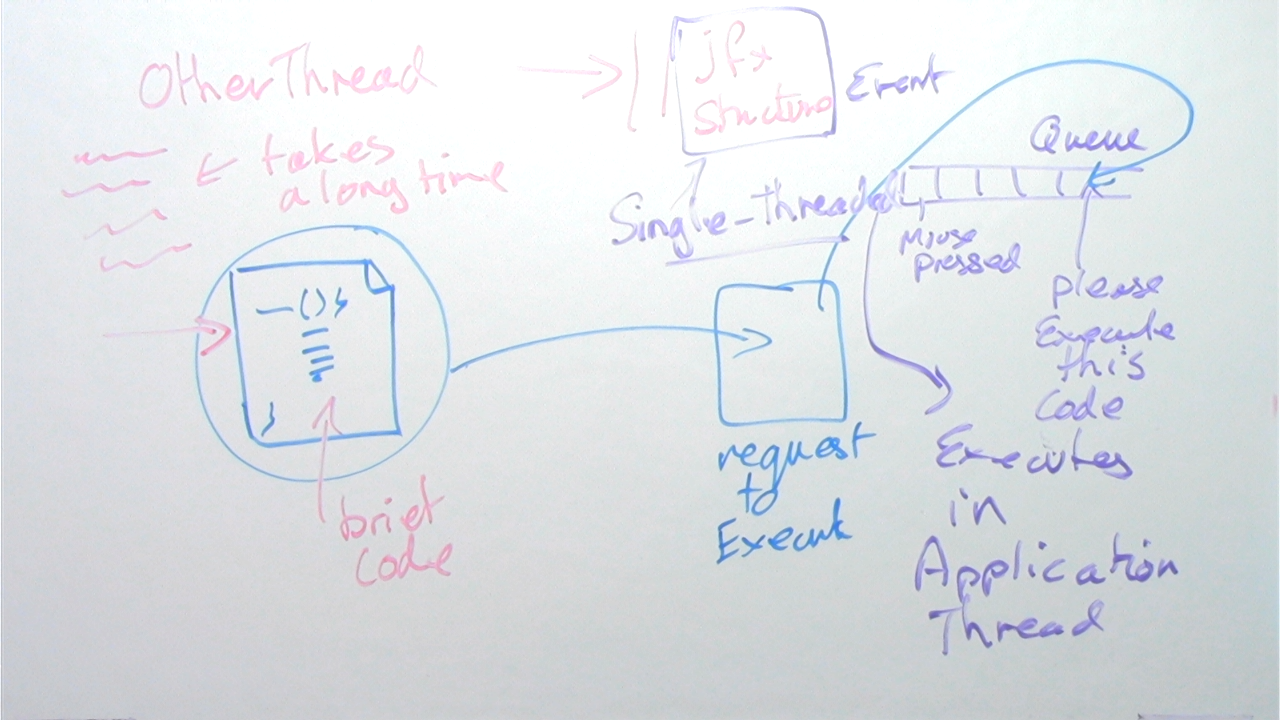 Other Thread
takes
a long time
jfx
structure
Event
Queue
Single-threaded
Mouse
pressed
please
Execute
this
Code
—(){
}
brief
code
request
to
Execute
Executes
in
Application
Thread